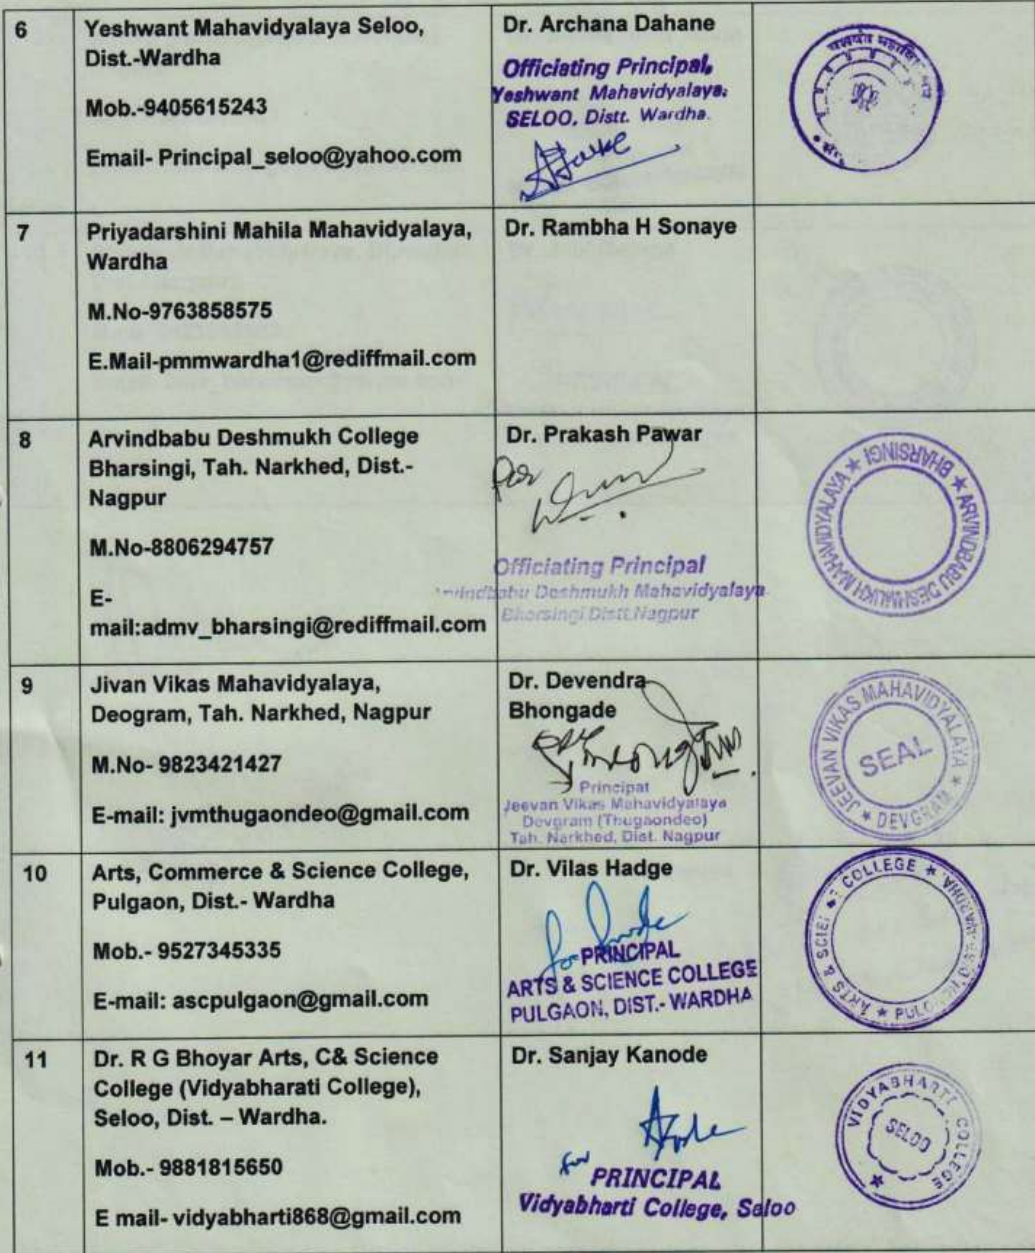 6
Yeshwant Mahavidyalaya Seloo,
Dist.-Wardha
Mob.-9405615243
Email- Principal_seloo@yahoo.com
Dr. Archana Dahane
Officiating Principal,
Yeshwant Mahavidyalaya,
SELOO, Distt. Wardha.
7
Priyadarshini Mahila Mahavidyalaya,
Wardha
M.No-9763858575
E.Mail-pmmwardha1@rediffmail.com
Dr. Rambha H Sonaye
8
Arvindbabu Deshmukh College
Bharsingi, Tah. Narkhed, Dist.-
Nagpur
M.No-8806294757
E-
mail:admv_bharsingi@rediffmail.com
Dr. Prakash Pawar
for
Officiating Principal
Arvindbabu Deshmukh Mahavidyalaya
Bharsingi Distt.Nagpur
ARVINDBABU DESHMUKH MAHAVIDYALAYA ★ BHARSINGI ★
9
Jivan Vikas Mahavidyalaya,
Deogram, Tah. Narkhed, Nagpur
M.No- 9823421427
E-mail: jvmthugaondeo@gmail.com
Dr. Devendra
Bhongade
Principal
Jeevan Vikas Mahavidyalaya
Devgram (Thugaondeo)
Tah. Narkhed, Dist. Nagpur
JEEVAN VIKAS MAHAVIDYALAYA ★ DEVGRAM ★
SEAL
10
Arts, Commerce & Science College,
Pulgaon, Dist.- Wardha
Mob.- 9527345335
E-mail: ascpulgaon@gmail.com
Dr. Vilas Hadge
for
PRINCIPAL
ARTS & SCIENCE COLLEGE
PULGAON, DIST.- WARDHA
ARTS & COLLEGE ★
11
Dr. R G Bhoyar Arts, C& Science
College (Vidyabharati College),
Seloo, Dist. – Wardha.
Mob.- 9881815650
E mail- vidyabharti868@gmail.com
Dr. Sanjay Kanode
for
PRINCIPAL
Vidyabharti College, Seloo
VIDYABHARTI COLLEGE ★
SELOO